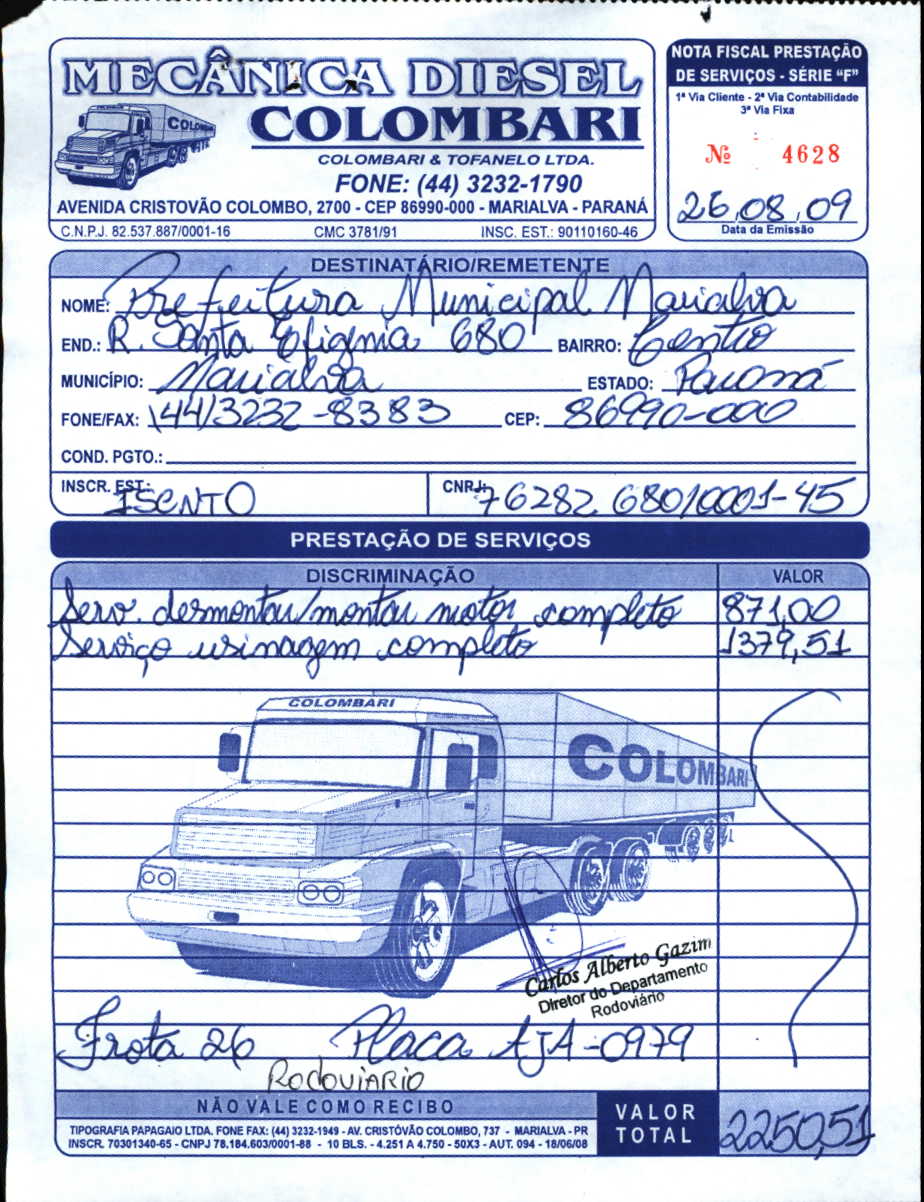 MECÂNICA DIESEL
COLOMBARI
COLOMBARI
COLOMBARI & TOFANELO LTDA.
FONE: (44) 3232-1790
AVENIDA CRISTOVÃO COLOMBO, 2700 - CEP 86990-000 - MARIALVA - PARANÁ
C.N.P.J. 82.537.887/0001-16 CMC 3781/91 INSC. EST.: 90110160-46
NOTA FISCAL PRESTAÇÃO
DE SERVIÇOS - SÉRIE “F”
1ª Via Cliente - 2ª Via Contabilidade
3ª Via Fixa
Nº 4628
26,08,09
Data da Emissão
DESTINATÁRIO/REMETENTE
NOME: Prefeitura Municipal Marialva
END.: R. Santa Efigenia 680 BAIRRO: Centro
MUNICÍPIO: Marialva ESTADO: Paraná
FONE/FAX: (44)3232-8383 CEP: 86990-000
COND. PGTO.:
INSCR. EST.: ISENTO CNPJ: 76282 680/0001-45
PRESTAÇÃO DE SERVIÇOS
DISCRIMINAÇÃO VALOR
Serv. desmontar/montar motor completo 871,00
Serviço usinagem completo 1379,51
COLOMBARI
COLOMBARI
Carlos Alberto Gazim
Diretor do Departamento
Rodoviário
Frota 26 Placa AJA-0979
RODOVIARIO
NÃO VALE COMO RECIBO
TIPOGRAFIA PAPAGAIO LTDA, FONE FAX: (44) 3232-1949 - AV. CRISTÓVÃO COLOMBO, 737 - MARIALVA - PR
INSCR. 70301340-65 - CNPJ 78.184.603/0001-88 - 10 BLS. - 4.251 A 4.750 - 50X3 - AUT. 094 - 18/06/08
VALOR
TOTAL 2250,51